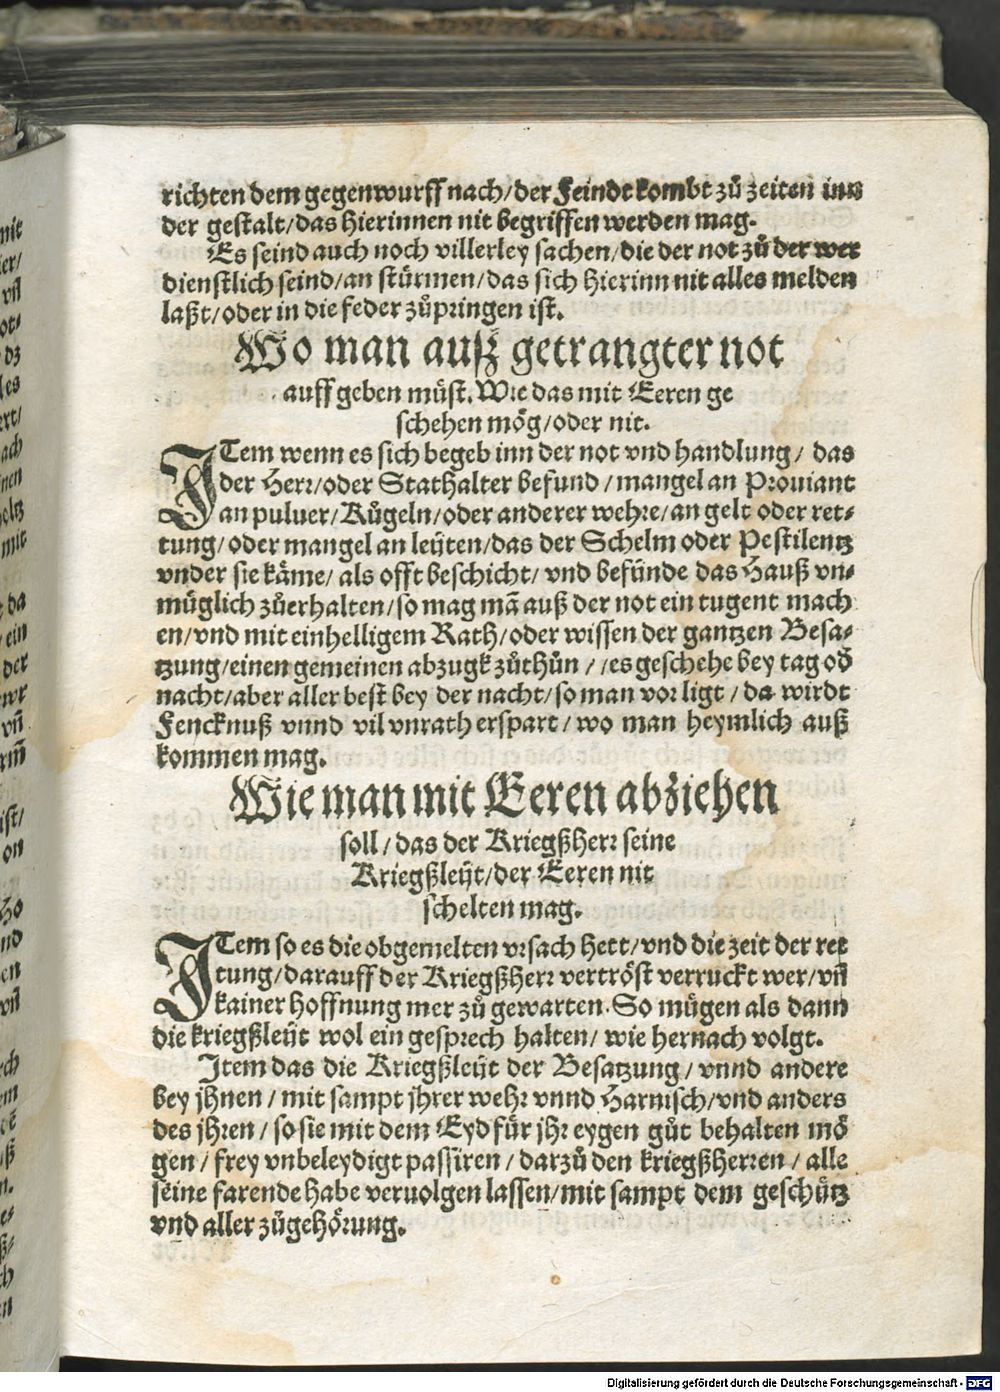 richten dem gegenwurff nach/der Feindt kombt zů zeiten inn
der gestalt/das hierinnen nit begriffen werden mag.
Es seind auch noch villerley sachen/die der not zů der wer
dienstlich seind/an stürmen/das sich hierinn nit alles melden
laßt/oder in die feder zůpringen ist.
Wo man auß getrangter not
auff geben müst. Wie das mit Eeren ge
schehen mög/oder nit.
JTem wenn es sich begeb inn der not vnd handlung/ das
der Herr/oder Stathalter befund/mangel an Prouiant
an puluer/Kůgeln/oder anderer wehre/an gelt oder ret⸗
tung/oder mangel an leüten/das der Schelm oder Pestilentz
vnder sie käme/ als offt beschicht/ vnd befünde das Hauß vn⸗
müglich zůerhalten/so mag mā auß der not ein tugent mach
en/vnd mit einhelligem Rath/oder wissen der gantzen Besa⸗
tzung/einen gemeinen abzugk zůthůn/ /es geschehe bey tag oď
nacht/aber aller best bey der nacht/so man vor ligt/da wirdt
Fencknuß vnnd vil vnrath erspart/wo man heymlich auß
kommen mag.
Wie man mit Eeren abziehen
soll/das der Kriegßherr seine
Kriegßleüt/der Eeren nit
schelten mag.
JTem so es die obgemelten vrsach hett/vnd die zeit der ret
tung/darauff der Kriegßherr vertröst verruckt wer/vñ
kainer hoffnung mer zů gewarten. So mügen als dann
die kriegßleüt wol ein gesprech halten/ wie hernach volgt.
Jtem das die Kriegßleüt der Besatzung/vnnd andere
bey jhnen/mit sampt jhrer wehr vnnd Harnisch/vnd anders
des jhren/so sie mit dem Eyd für jhr eygen gůt behalten mö
gen/frey vnbeleydigt passiren/darzů den kriegßherren/alle
seine farende habe veruolgen lassen/mit sampt dem geschütz
vnd aller zůgehörung.
Digitalisierung gefördert durch die Deutsche Forschungsgemeinschaft - DFG